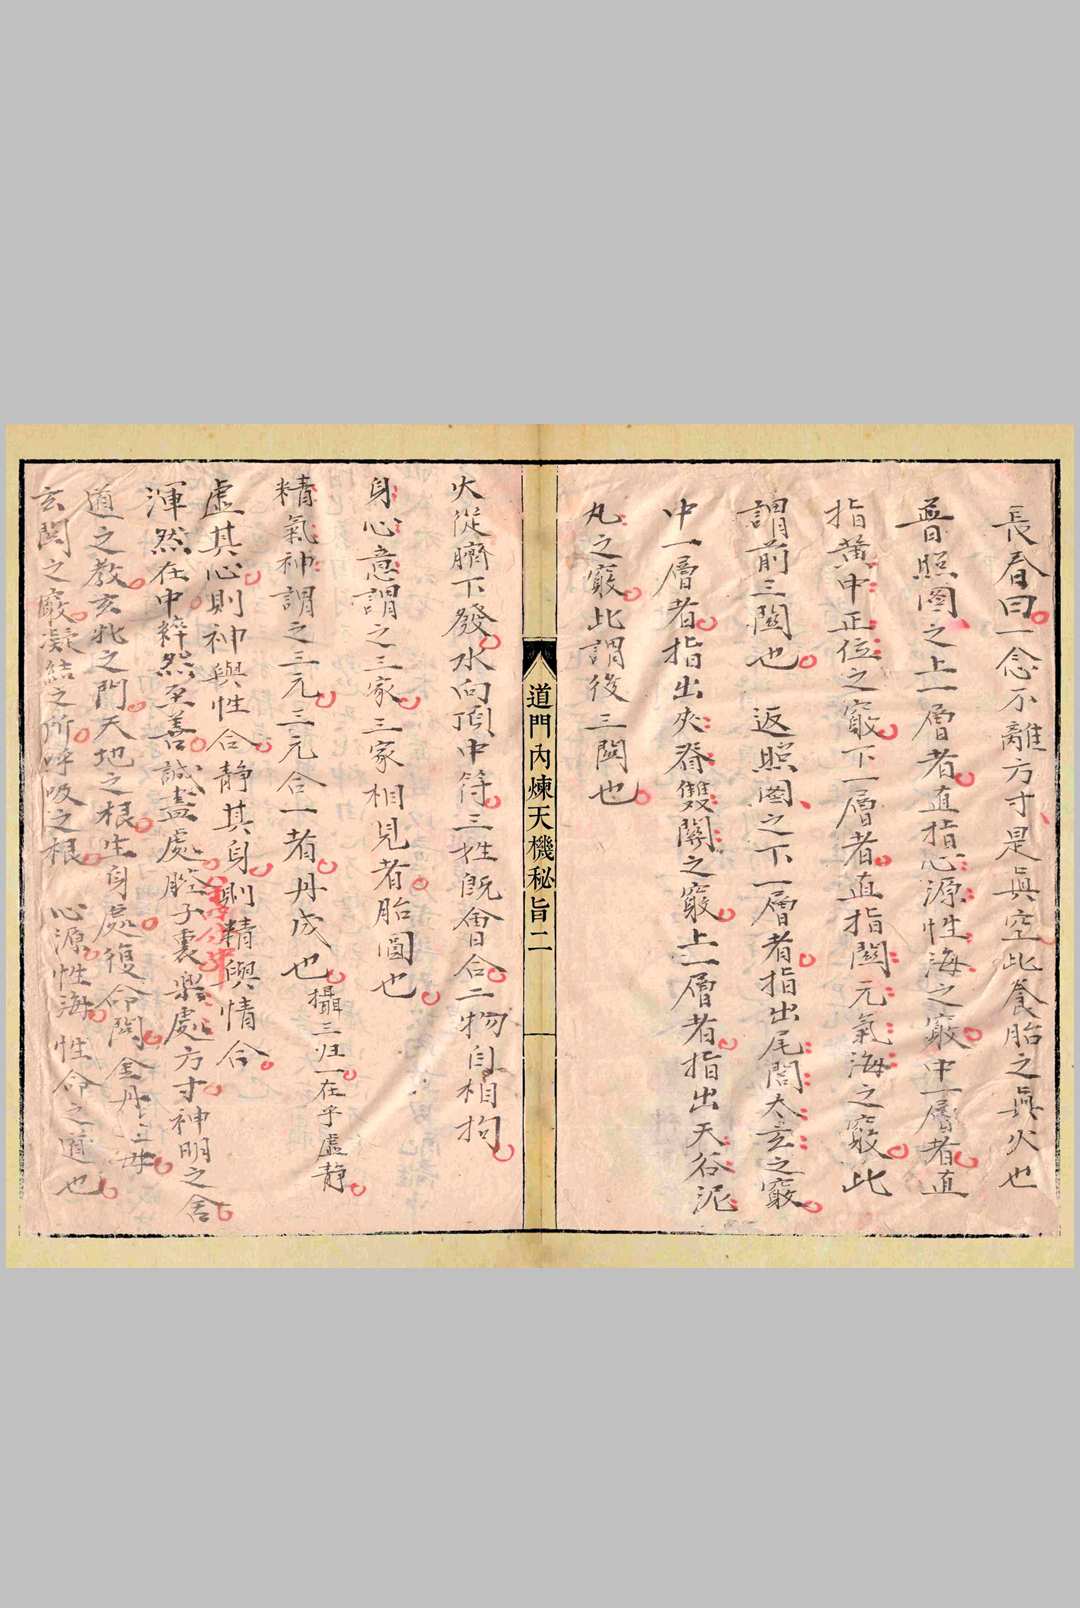 長春曰一念不離方寸是眞空此養胎之眞火也
普照圖之上一層者直指心源性海之竅中一層者直
指黃中正位之竅下一層者直指關元氣海之竅此
謂前三關也 返照圖之下一層者指出尾閭太玄之竅
中一層者指出夾脊雙關之竅上一層者指出天谷泥
丸之竅此謂後三關也
道門內煉天機秘旨二
火從臍下發水向頂中符三姓旣會合二物自相拘
身心意謂之三家三家相見者胎圓也
精氣神謂之三元三元合一者丹成也攝三歸一在乎虛靜
虛其心則神與性合靜其身則精與情合
渾然在中粹然至善誠盡處腔子裏樂處方寸神明之舍
道之教玄牝之門天地之根生身處復命關金丹之母
玄關之竅凝結之所呼吸之根 心源性海性命之道也